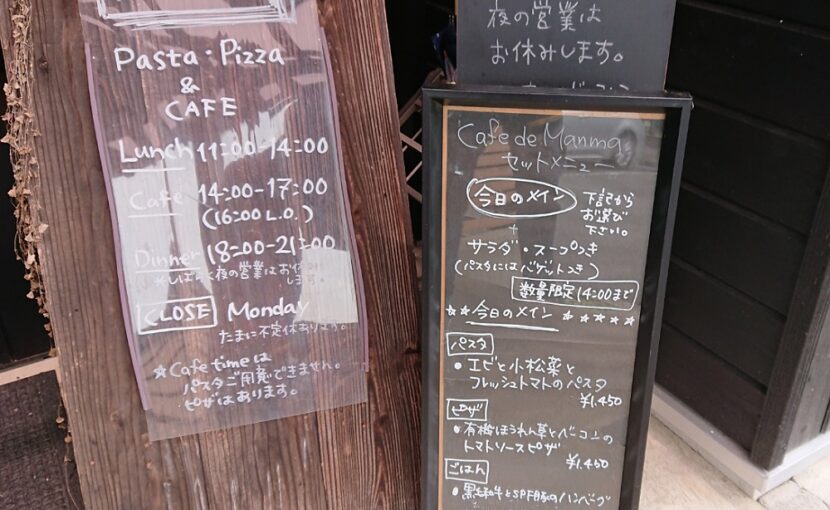 Pasta・Pizza
&
CAFE
Lunch 11:00-14:00
Cafe 14:00-17:00
(16:00 L.O.)
Dinner 18:00-21:00
※しばらく夜の営業はお休み
します。
CLOSE Monday
たまに不定休あります。
☆Cafe timeは
パスタご用意できません。
ピザはあります。
夜の営業は
お休みします。
Cafe de Manma
セットメニュー
今日のメイン
下記から
お選び
下さい。
+
サラダ・スープつき
(パスタにはバゲットつき)
数量限定 14:00まで
★★今日のメイン★★★★★
パスタ
・エビと小松菜と
フレッシュトマトのパスタ
¥1,450
ピザ
・有機ほうれん草とベーコンの
トマトソースピザ
¥1,450
ごはん
・黒毛和牛とSPF豚のハンバーグ